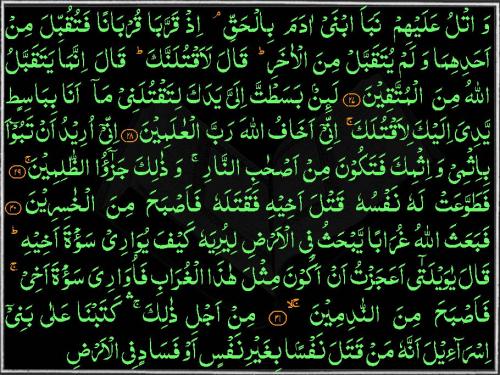 وَ اتْلُ عَلَيْهِمْ نَبَاَ ابْنَيْ اٰدَمَ بِالْحَقِّ ۘ اِذْ قَرَّبَا قُرْبَانًا فَتُقُبِّلَ مِنْ
اَحَدِهِمَا وَ لَمْ يُتَقَبَّلْ مِنَ الْاٰخَرِ ؕ قَالَ لَاَقْتُلَنَّكَ ؕ قَالَ اِنَّمَا يَتَقَبَّلُ
اللّٰهُ مِنَ الْمُتَّقِيْنَ ﴿۲۷﴾ لَئِنْۢ بَسَطْتَّ اِلَيَّ يَدَكَ لِتَقْتُلَنِيْ مَاۤ اَنَا بِبَاسِطٍ
يَّدِيَ اِلَيْكَ لِاَقْتُلَكَ ۚ اِنِّيْۤ اَخَافُ اللّٰهَ رَبَّ الْعٰلَمِيْنَ ﴿۲۸﴾ اِنِّيْۤ اُرِيْدُ اَنْ تَبُوْٓاَ
بِاِثْمِيْ وَ اِثْمِكَ فَتَكُوْنَ مِنْ اَصْحٰبِ النَّارِ ۚ وَ ذٰلِكَ جَزٰٓؤُا الظّٰلِمِيْنَ ۚ﴿۲۹﴾
فَطَوَّعَتْ لَهٗ نَفْسُهٗ قَتْلَ اَخِيْهِ فَقَتَلَهٗ فَاَصْبَحَ مِنَ الْخٰسِرِيْنَ ﴿۳۰﴾
فَبَعَثَ اللّٰهُ غُرَابًا يَّبْحَثُ فِي الْاَرْضِ لِيُرِيَهٗ كَيْفَ يُوَارِيْ سَوْءَةَ اَخِيْهِ ؕ
قَالَ يٰوَيْلَتٰۤى اَعَجَزْتُ اَنْ اَكُوْنَ مِثْلَ هٰذَا الْغُرَابِ فَاُوَارِيَ سَوْءَةَ اَخِيْ ۚ
فَاَصْبَحَ مِنَ النّٰدِمِيْنَ ۚۛۙ﴿۳۱﴾ مِنْ اَجْلِ ذٰلِكَ ۚۛ كَتَبْنَا عَلٰى بَنِيْۤ
اِسْرَآءِيْلَ اَنَّهٗ مَنْ قَتَلَ نَفْسًۢا بِغَيْرِ نَفْسٍ اَوْ فَسَادٍ فِي الْاَرْضِ